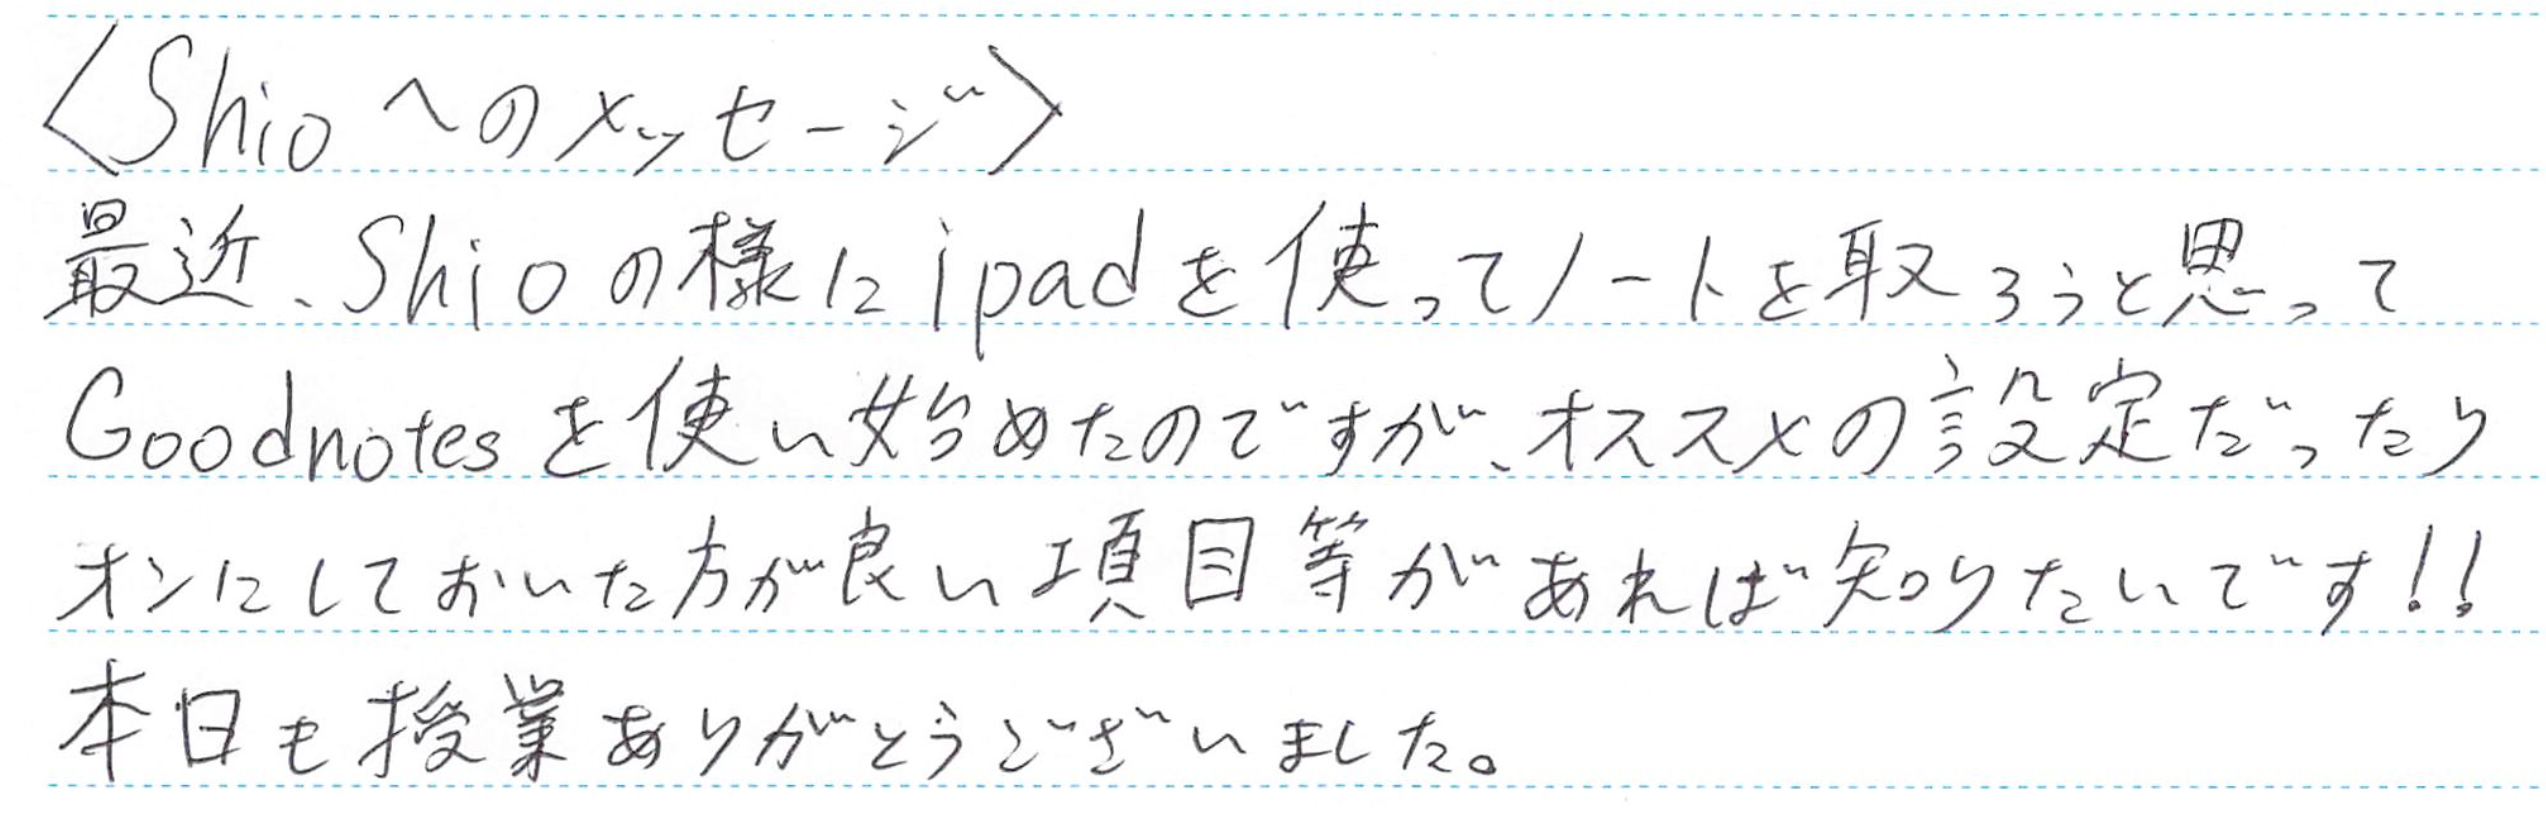 〈Shioへのメッセージ〉
最近、Shioの様にipadを使ってノートを取ろうと思って
Goodnotesを使い始めたのですが、オススメの設定だったり
オンにしておいた方が良い項目等があれば知りたいです!!
本日も授業ありがとうございました。